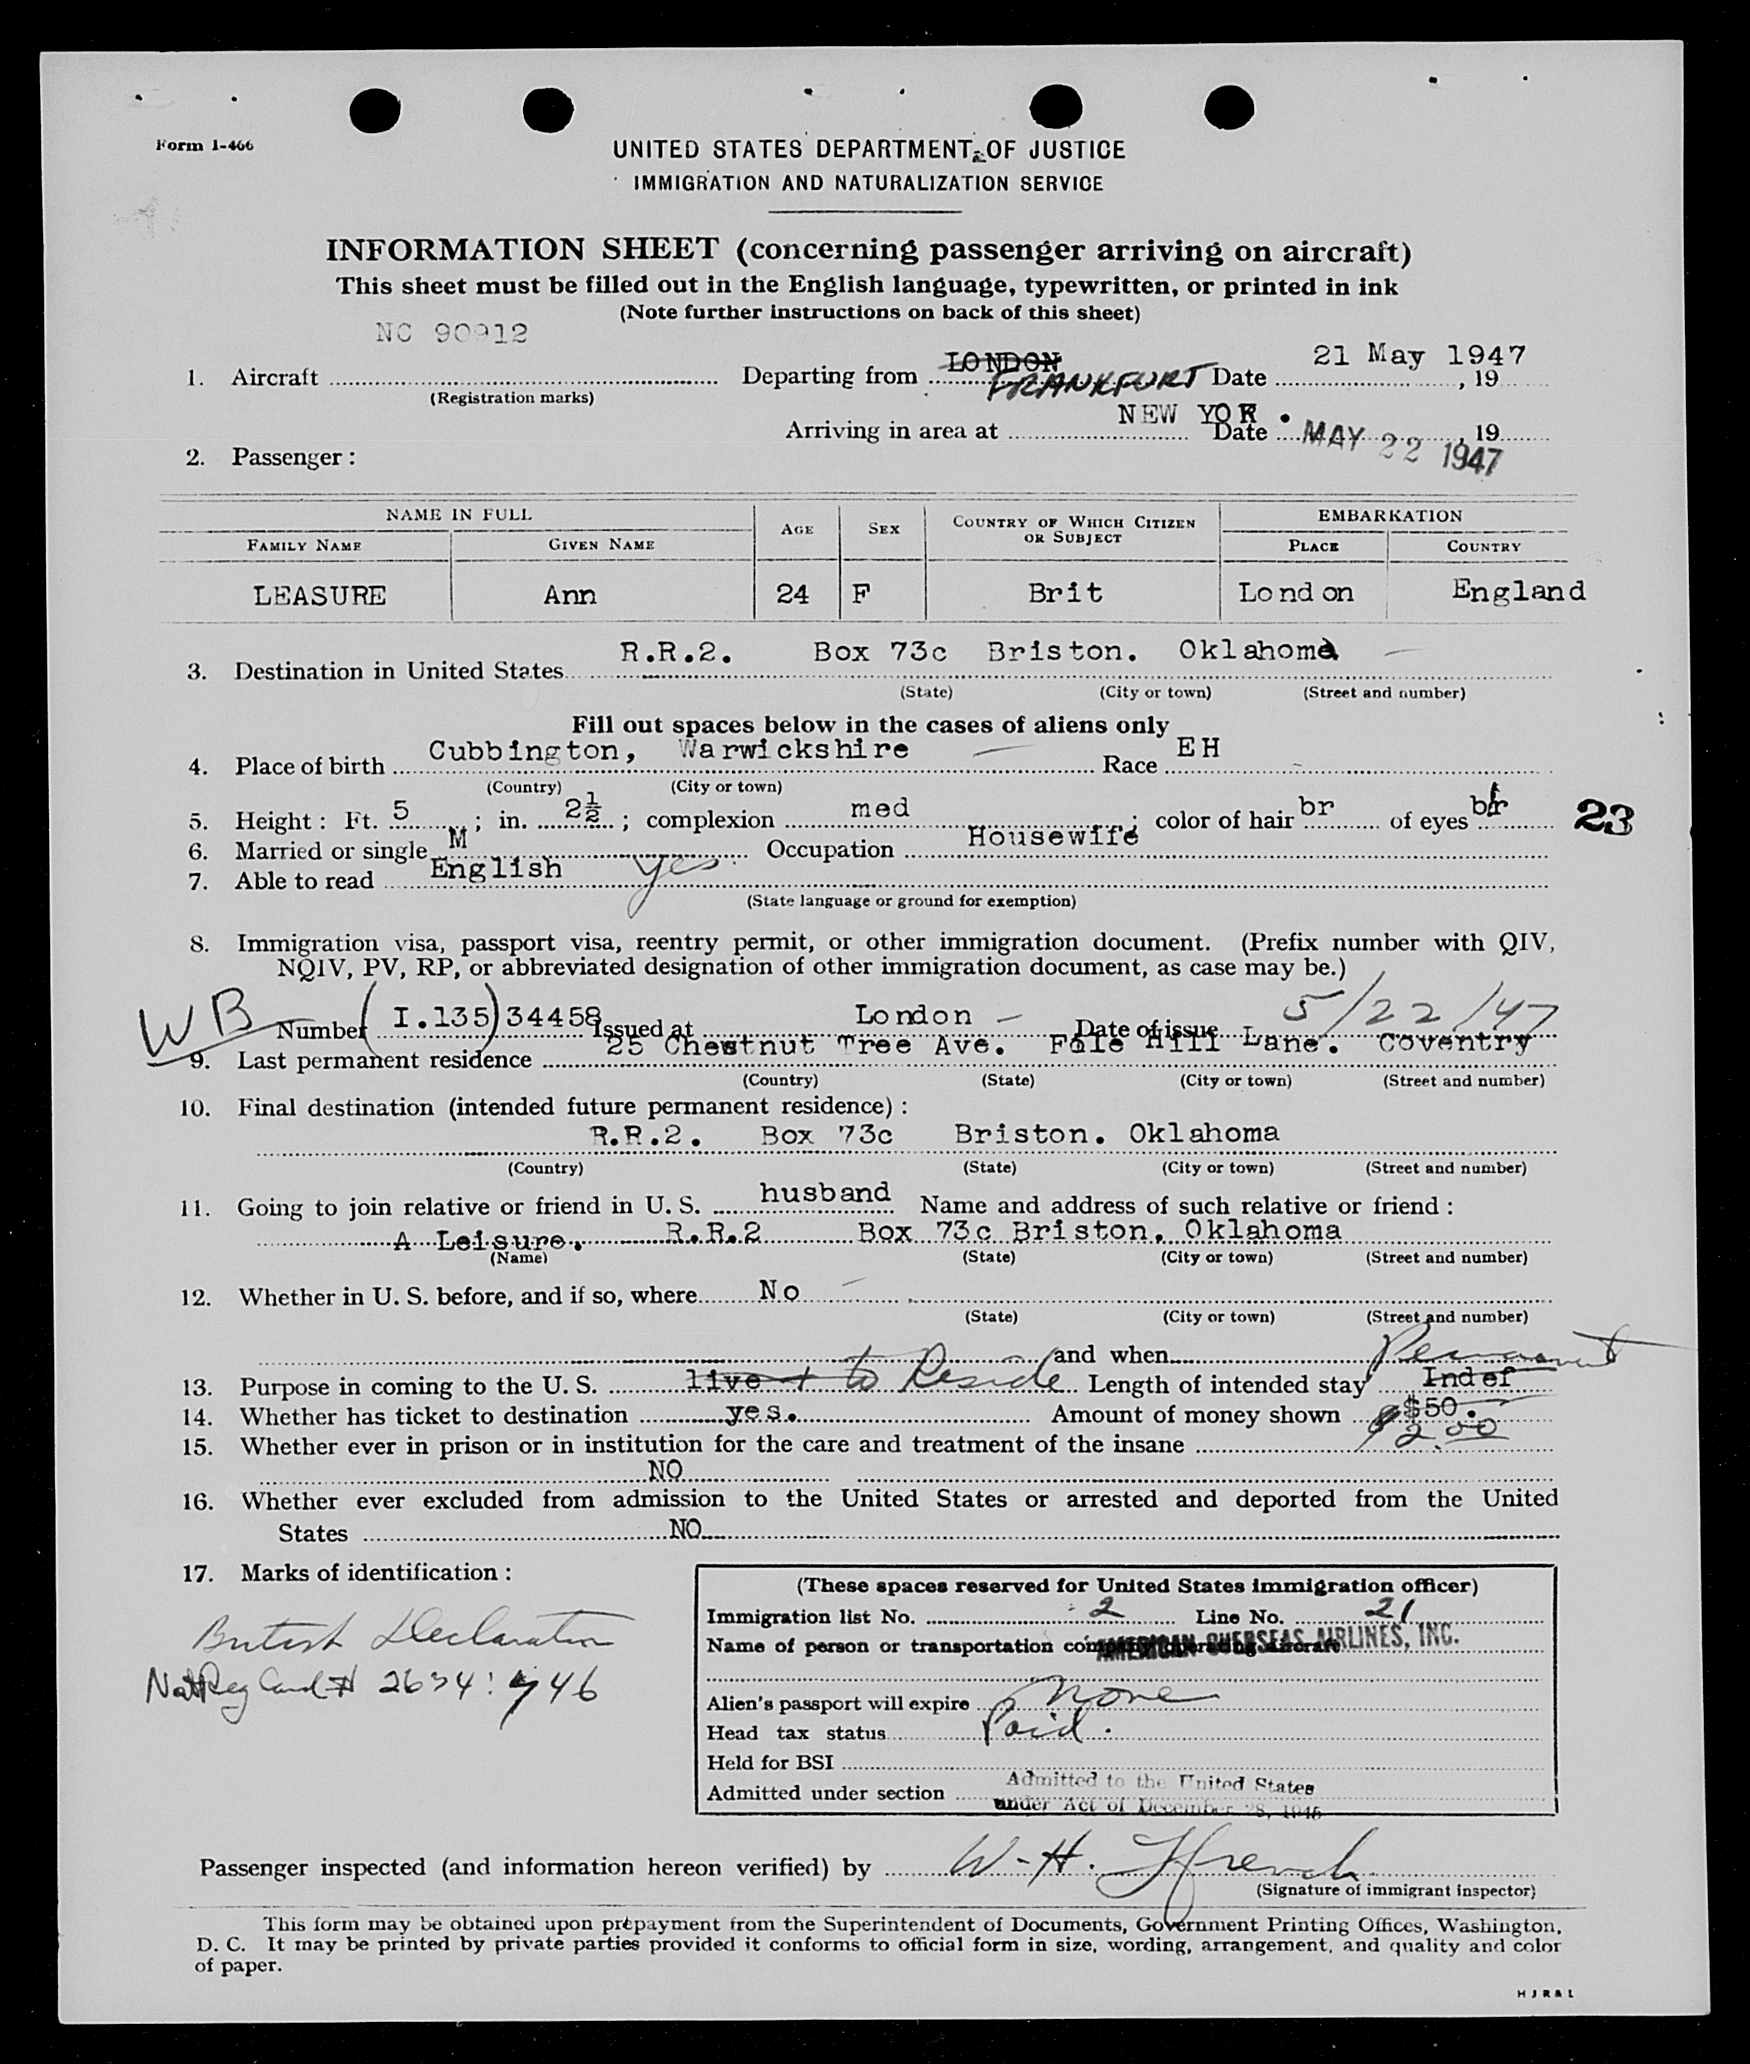 Form I-466
UNITED STATES DEPARTMENT OF JUSTICE
IMMIGRATION AND NATURALIZATION SERVICE
INFORMATION SHEET (concerning passenger arriving on aircraft)
This sheet must be filled out in the English language, typewritten, or printed in ink
(Note further instructions on back of this sheet)
NC 90912
1. Aircraft Departing from LONDON FRANKFURT Date 21 May 1947 , 19
(Registration marks)
Arriving in area at NEW YORK Date MAY 22 1947 , 19
2. Passenger:
NAME IN FULL AGE SEX COUNTRY OF WHICH CITIZEN OR SUBJECT EMBARKATION
FAMILY NAME GIVEN NAME PLACE COUNTRY
LEASURE Ann 24 F Brit London England
3. Destination in United States R.R.2. Box 73c Briston. Oklahoma
(State) (City or town) (Street and number)
Fill out spaces below in the cases of aliens only
4. Place of birth Cubbington, Warwickshire Race EH
(Country) (City or town)
5. Height: Ft. 5 ; in. 2½ ; complexion med ; color of hair br of eyes 23
6. Married or single M Occupation Housewife
7. Able to read English yes
(State language or ground for exemption)
8. Immigration visa, passport visa, reentry permit, or other immigration document. (Prefix number with QIV,
NQIV, PV, RP, or abbreviated designation of other immigration document, as case may be.)
WB Number (I.135) 34458 Issued at London Date of issue 5/22/47
9. Last permanent residence 25 Chestnut Tree Ave. Fole Hill Lane. Coventry
(Country) (State) (City or town) (Street and number)
10. Final destination (intended future permanent residence):
R.R.2. Box 73c Briston. Oklahoma
(Country) (State) (City or town) (Street and number)
11. Going to join relative or friend in U. S. husband Name and address of such relative or friend:
A Leisure. R.R.2 Box 73c Briston. Oklahoma
(Name) (State) (City or town) (Street and number)
12. Whether in U. S. before, and if so, where No
(State) (City or town) (Street and number)
and when Permanent
13. Purpose in coming to the U. S. live to Reside Length of intended stay Indef
14. Whether has ticket to destination yes. Amount of money shown $50.
15. Whether ever in prison or in institution for the care and treatment of the insane 2.00
NO
16. Whether ever excluded from admission to the United States or arrested and deported from the United
States NO
17. Marks of identification:
British Declaration
Nat Reg Card # 2634:746
(These spaces reserved for United States immigration officer)
Immigration list No. 2 Line No. 21
Name of person or transportation company operating aircraft AMERICAN OVERSEAS AIRLINES, INC.
Alien's passport will expire None
Head tax status Paid.
Held for BSI
Admitted under section Admitted to the United States
under Act of December 28, 1945
Passenger inspected (and information hereon verified) by W-H. French
(Signature of immigrant inspector)
This form may be obtained upon prepayment from the Superintendent of Documents, Government Printing Offices, Washington,
D. C. It may be printed by private parties provided it conforms to official form in size, wording, arrangement, and quality and color
of paper.
HJR&L